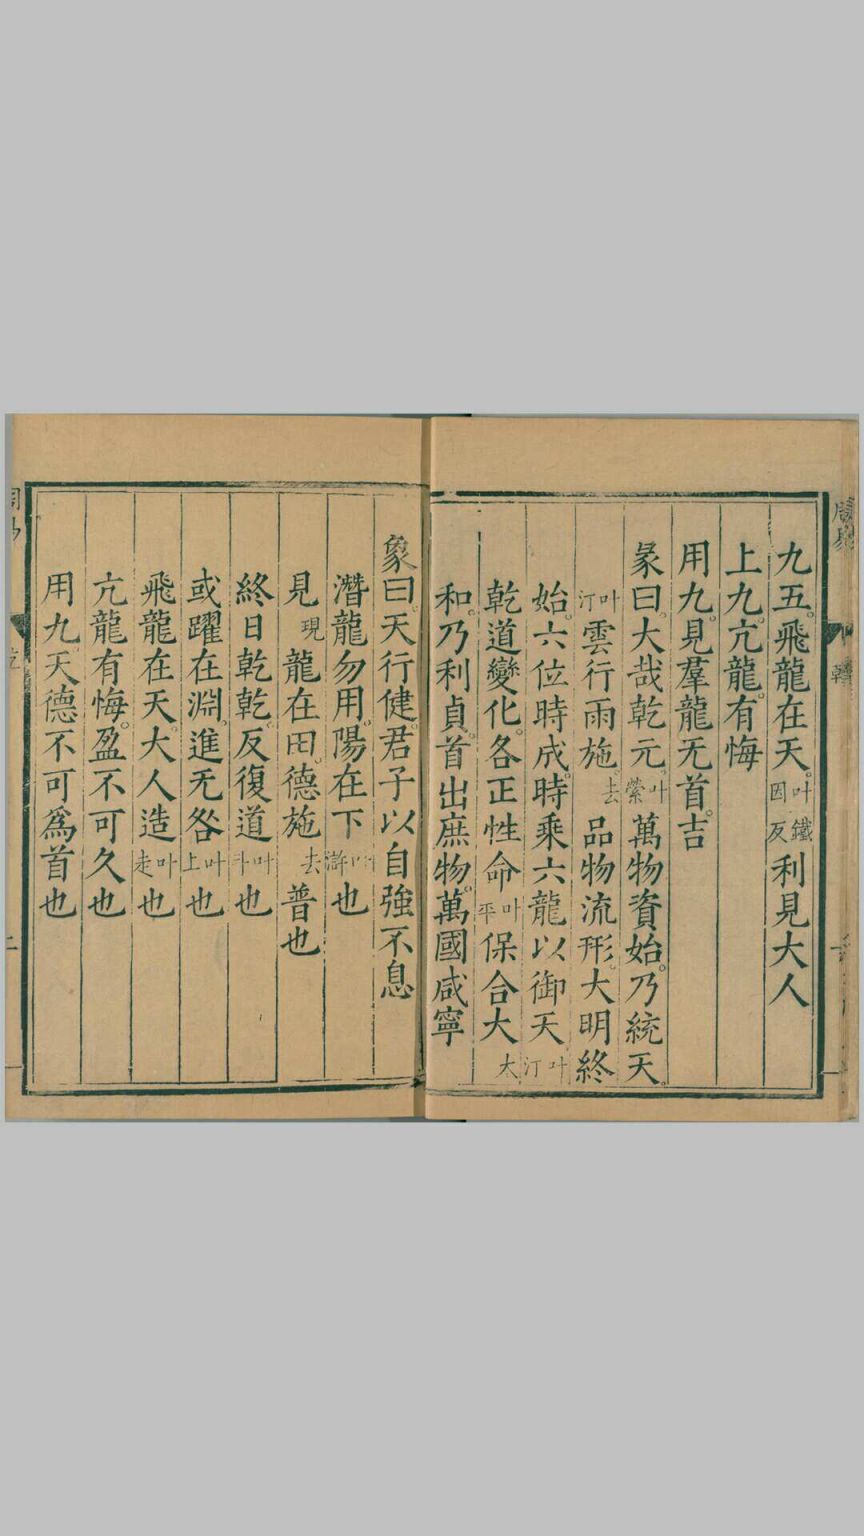 九五。飛龍在天。叶鐵因反利見大人
上九。亢龍。有悔
用九。見羣龍无首。吉
彖曰。大哉乾元。叶縈萬物資始。乃統天。
叶汀雲行雨施。去品物流形。大明終
始。六位時成。時乘六龍以御天叶汀
乾道變化。各正性命叶平保合大太
和。乃利貞。首出庶物。萬國咸寧
象曰。天行健。君子以自強不息
潛龍勿用。陽在下叶滸也
見現龍在田。德施去普也
終日乾乾。反復道叶斗也
或躍在淵。進无咎叶上也
飛龍在天。大人造叶走也
亢龍有悔。盈不可久也
用九。天德不可爲首也